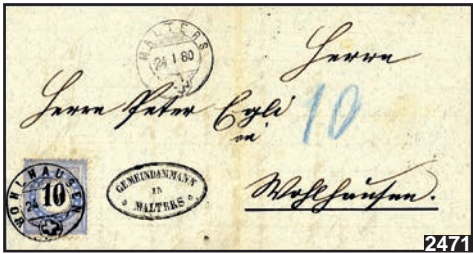 MALTERS
24 I 80
Herrn
Herrn Peter Egli
in
10
Wohlhausen.
WOHLHAUSEN
24
10
GEMEINDAMMANN
IN
MALTERS
2471